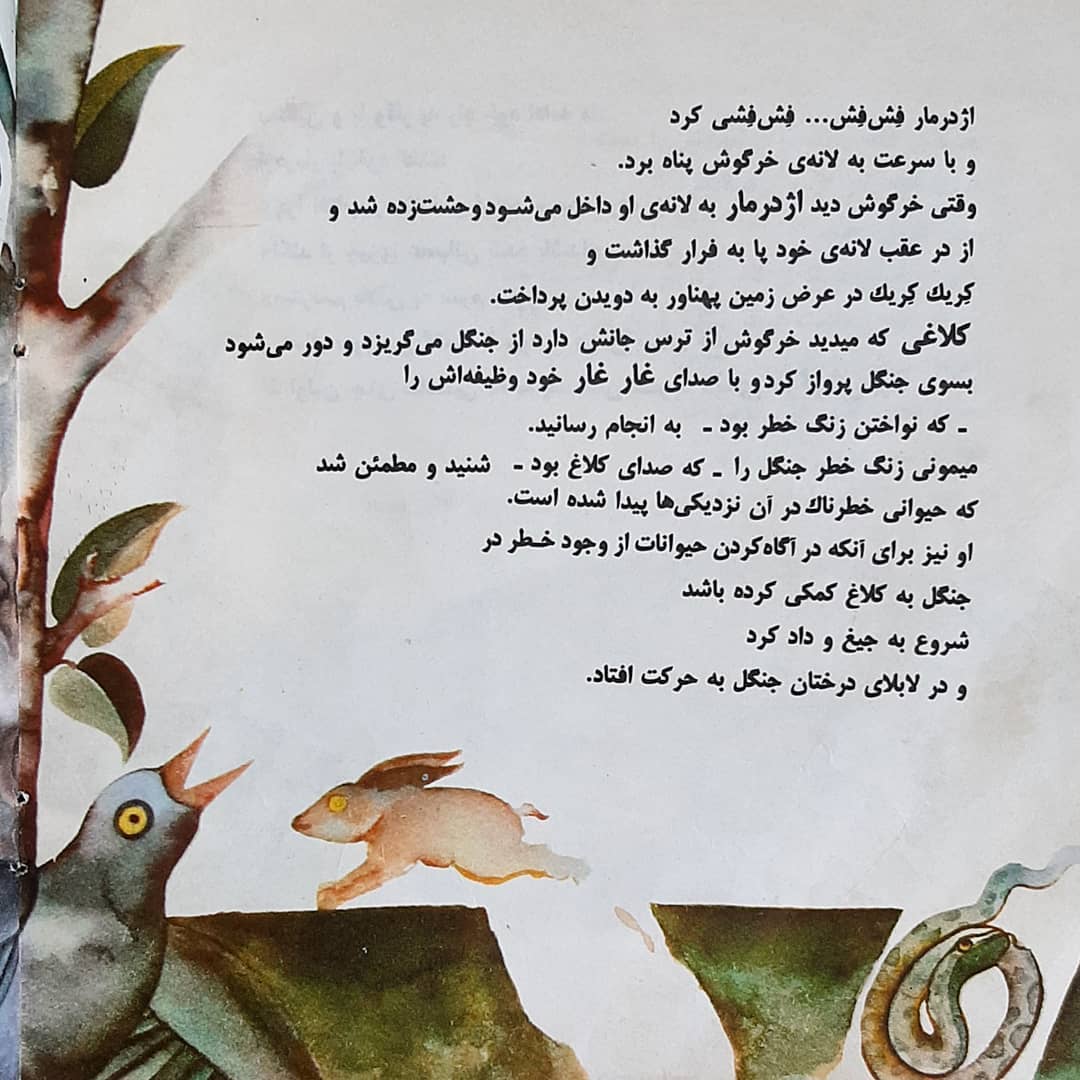 اژدرمار فِش‌فِش... فِش‌فِشی کرد
و با سرعت به لانه‌ی خرگوش پناه برد.
وقتی خرگوش دید اژدرمار به لانه‌ی او داخل می‌شود وحشت‌زده شد و
از در عقب لانه‌ی خود پا به فرار گذاشت و
کِریك کِریك در عرض زمین پهناور به دویدن پرداخت.
کلاغی که میدید خرگوش از ترس جانش دارد از جنگل می‌گریزد و دور می‌شود
بسوی جنگل پرواز کرد و با صدای غار غار خود وظیفه‌اش را
ـ که نواختن زنگ خطر بود ـ به انجام رسانید.
میمونی زنگ خطر جنگل را ـ که صدای کلاغ بود ـ شنید و مطمئن شد
که حیوانی خطرناك در آن نزدیکی‌ها پیدا شده است.
او نیز برای آنکه در آگاه‌کردن حیوانات از وجود خطر در
جنگل به کلاغ کمکی کرده باشد
شروع به جیغ و داد کرد
و در لابلای درختان جنگل به حرکت افتاد.